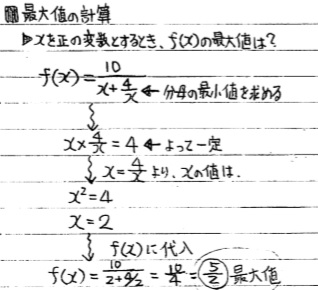 図 最大値の計算
▷xを正の変数とするとき、f(x)の最大値は?
f(x)=10/(x+4/x) ← 分母の最小値を求める
x×4/x=4 ← よって一定
x=4/xより、xの値は、
x²=4
x=2
f(x)に代入
f(x)=10/(2+4/2)=10/4=5/2 最大値